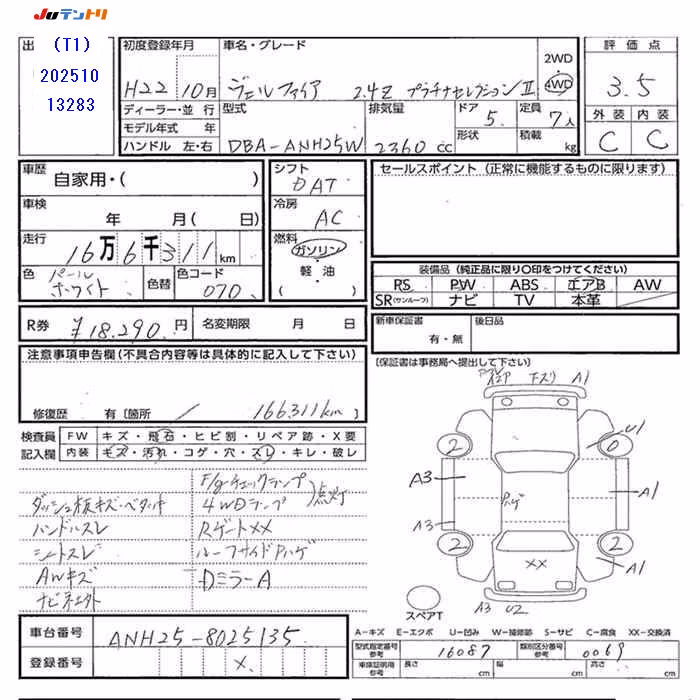 JUテントリ
出
(T1)
202510
13283
初度登録年月
H22 10月
車名・グレード
ヴェルファイア 2.4Z プラチナセレクションⅡ
2WD
4WD
評価点
3.5
外装 内装
C C
ディーラー・並行
モデル年式 年
ハンドル 左・右
型式
DBA-ANH25W
排気量
2360 cc
ドア
5
形状
定員
7人
積載
kg
車歴
自家用・( )
車検
年 月( 日)
走行
16万6千311km
色
パールホワイト
色替
色コード
070
シフト
DAT
冷房
AC
燃料
ガソリン
軽油
( )
セールスポイント (正常に機能するものに限ります)
装備品 (純正品に限り○印をつけてください)
RS PW ABS エアB AW
SR(サンルーフ) ナビ TV 本革
R券 ¥18,290円
名変期限 月 日
新車保証書
有・無
後日品
(保証書は事務局へ提出して下さい)
注意事項申告欄(不具合内容等は具体的に記入して下さい)
166,311km
修復歴 有〔箇所 / 〕
検査員
記入欄
FW キズ・飛石・ヒビ割・リペア跡・X要
内装 キズ・汚れ・コゲ・穴・スレ・キレ・破レ
F/gチェックランプ
4WDランプ
点灯
ダッシュ板キズ・ベタツキ
ハンドルスレ
シートスレ
AWキズ
ナビ社外
RゲートXX
ルーフサイドPハゲ
DミラーA
エアロ 下スリ A1
2
0
U1
A3
Pハゲ
A1
A3
2
2
XX
A1
スペアT
A3 U2
車台番号 ANH25-8025135
登録番号 X
A-キズ E-エクボ U-凹み W-補修跡 S-サビ C-腐食 XX-交換済
型式指定番号
参考
16087
類別区分番号
参考
0069
車庫証明用
参考
長さ cm
幅 cm
高さ cm